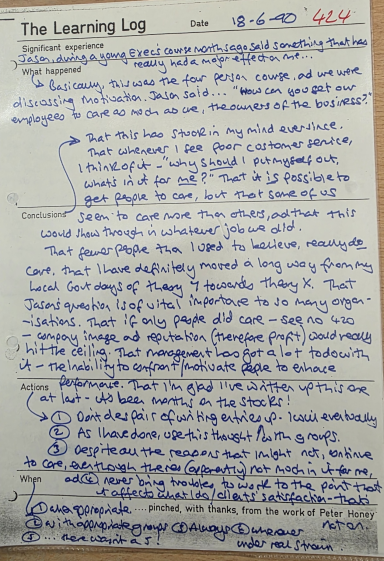 The Learning Log Date 18-6-90 424
Significant experience
Jason, during a young Exec's course months ago said something that has
What happened really had a major effect on me...
Basically, this was the four person course, ad we were
discussing motivation. Jason said... "How can you get our
employees to care as much as we, the owners of the business?"
That this has stuck in my mind ever since.
That whenever I see poor customer service,
I think of it - "why should I put myself out,
what's in it for me?" That it is possible to
get people to care, but that some of us
Conclusions seem to care more than others, ad that this
would show through in whatever job we did.
That fewer people than I used to believe, really do
care, that I have definitely moved a long way from my
Local Govt days of theory Y towards theory X. That
Jason's question is of vital importance to so many organ-
-isations. That if only people did care - see no 420
- company image ad reputation (therefore profit) would really
hit the ceiling. That management has got a lot to do with
it - the inability to confront/motivate people to enhance
performance. That I'm glad I've written up this one
Actions at last - it's been months on the stocks!
① Don't despair of writing entries up - I will eventually
② As I have done, use this thought with groups.
③ Despite all the reasons that I might not, continue
to care, even though there's (apparently) not much in it for me,
When ad ④ never bring troubles to work to the point that
it affects what I do/clients satisfaction - that's
① when appropriate. .... pinched, with thanks, from the work of Peter Honey
not on.
② with appropriate groups ③ Always ④ whenever
under real strain.
⑤ ... there wasn't a 5!